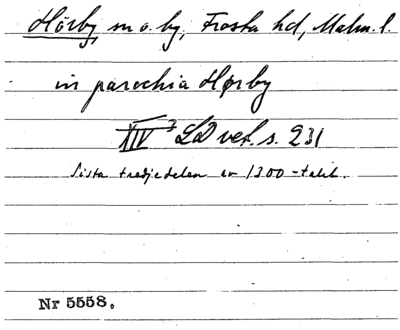 Hörby, sn o. by, Frosta hd, Malm. l.
in parochia Hørby
XIV 3 LD vet. s. 231
Sista tredjedelen av 1300-talet.
Nr 5558.